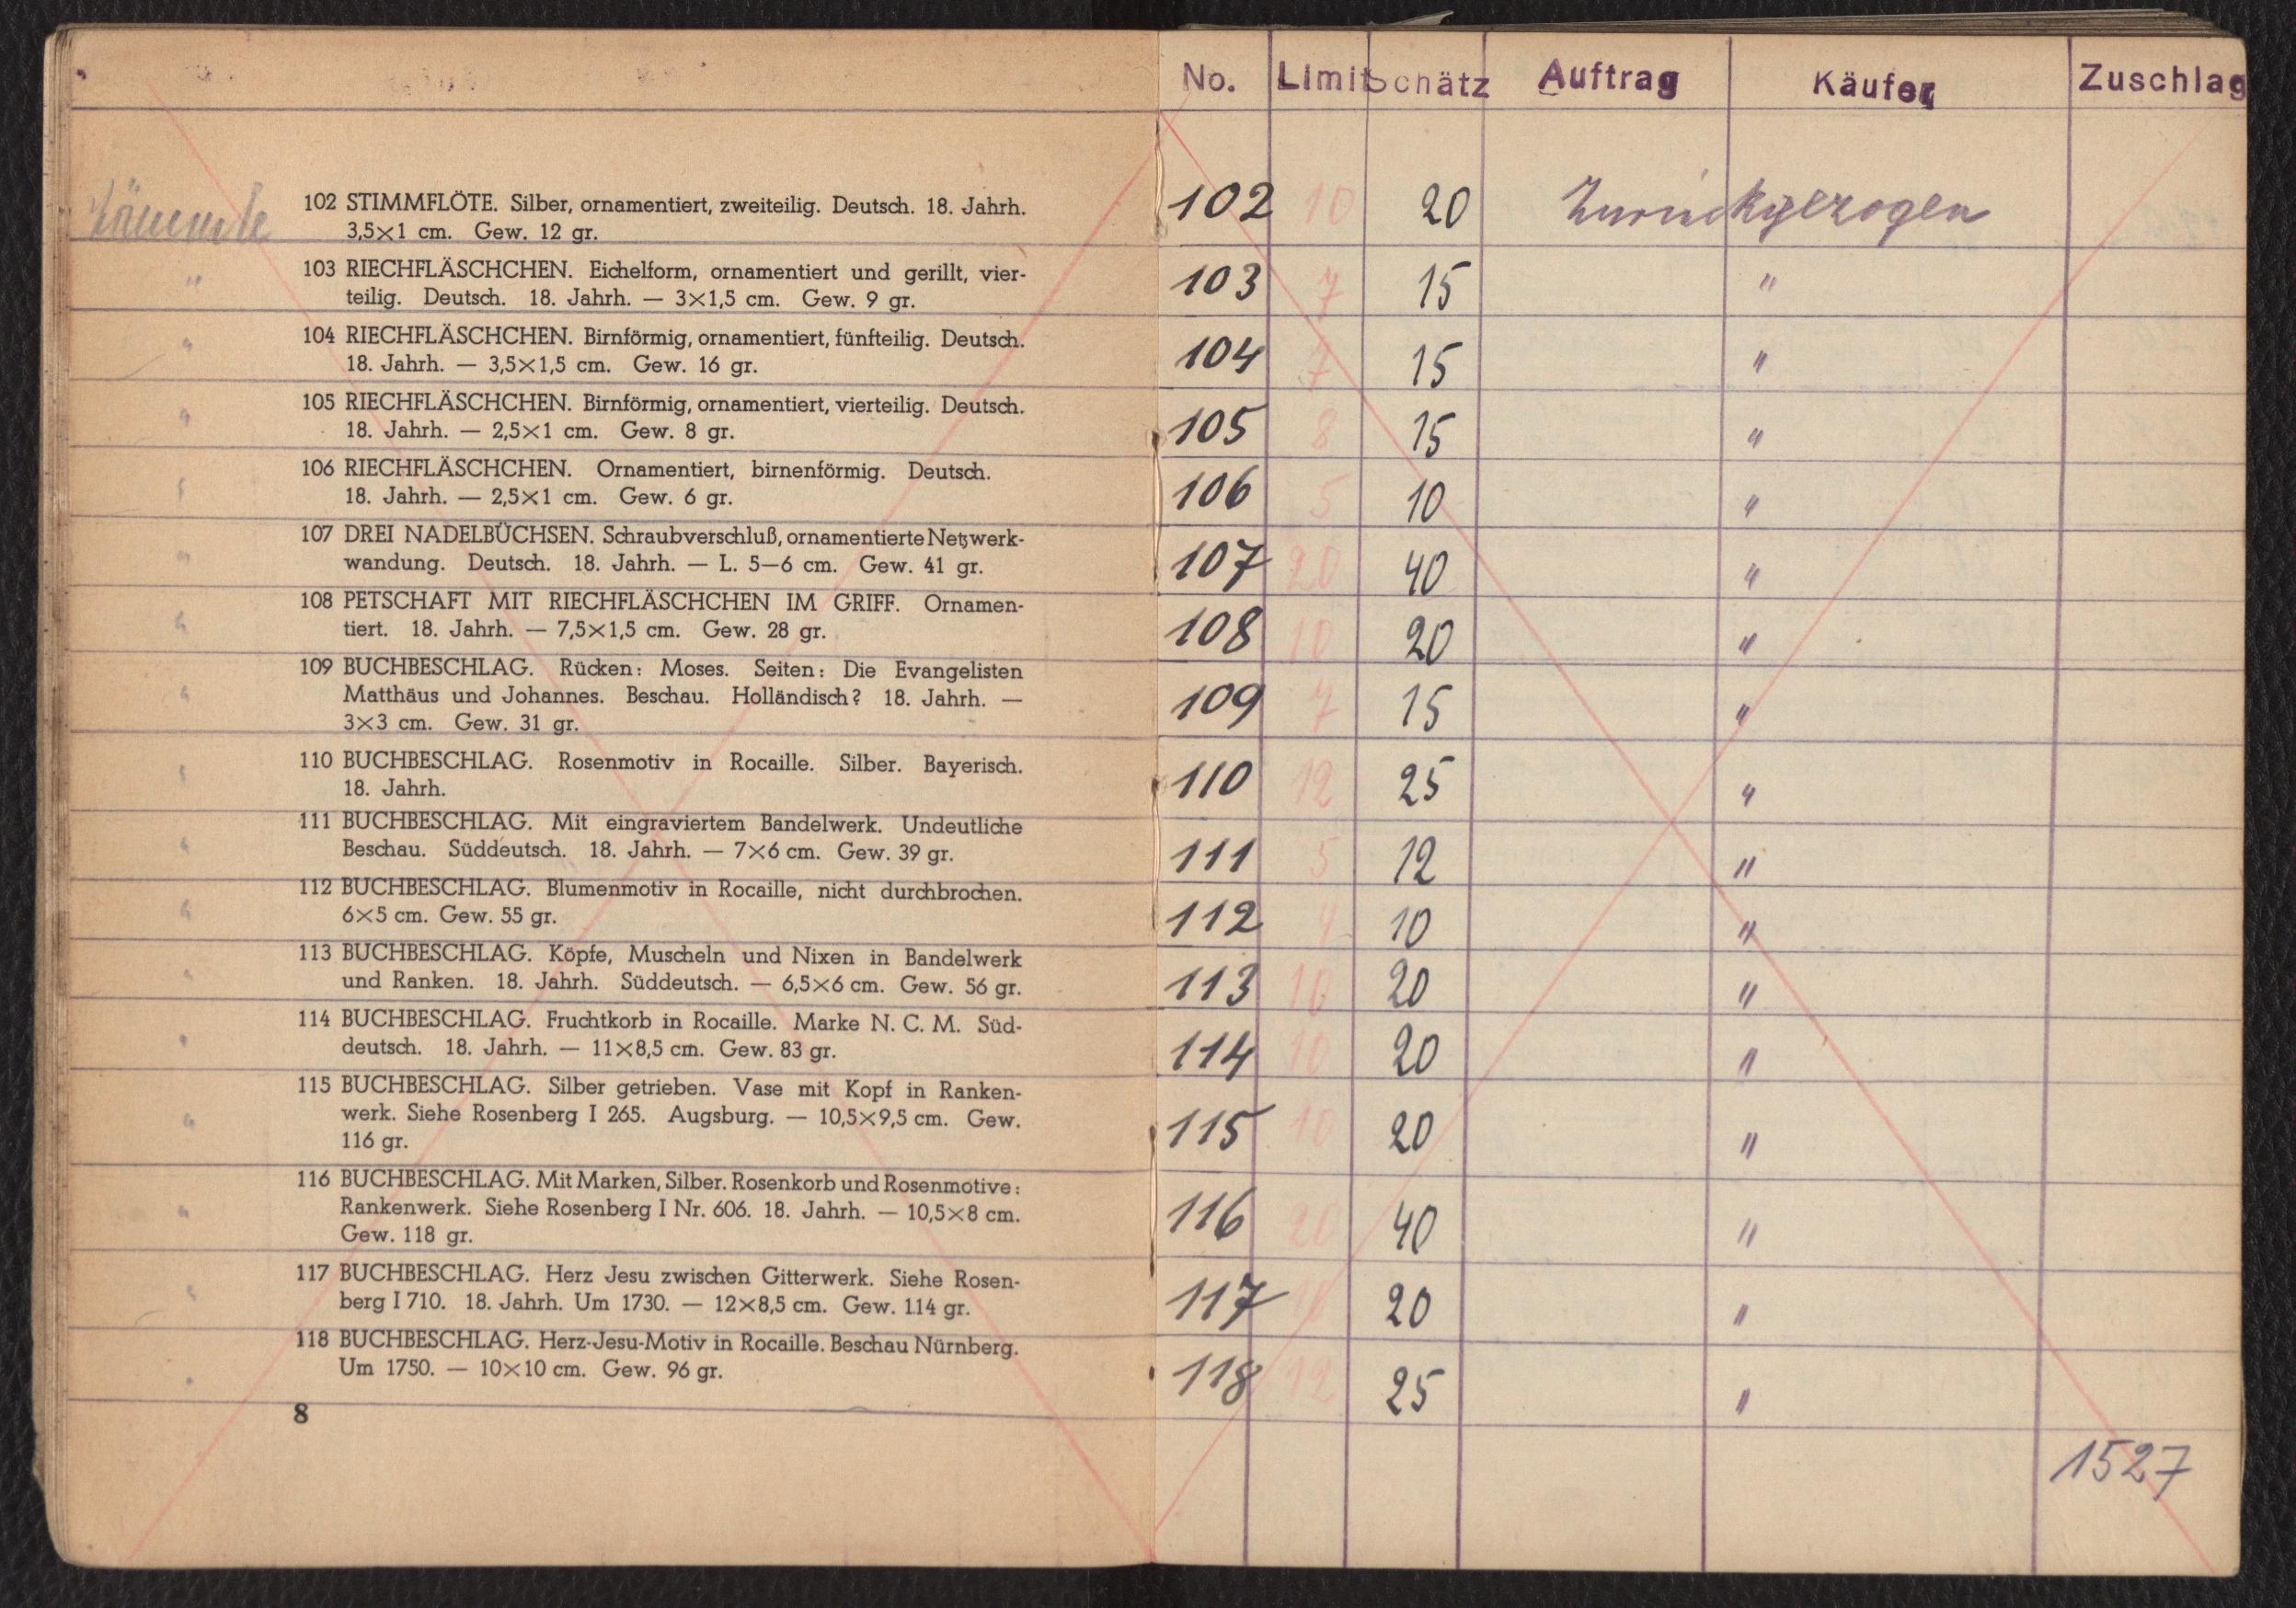 No. Limit Schätz Auftrag Käufer Zuschlag
102 STIMMFLÖTE. Silber, ornamentiert, zweiteilig. Deutsch. 18. Jahrh.
3,5×1 cm. Gew. 12 gr.
102 10 20 Zurückgezogen
" 103 RIECHFLÄSCHCHEN. Eichelform, ornamentiert und gerillt, vier-
teilig. Deutsch. 18. Jahrh. — 3×1,5 cm. Gew. 9 gr.
103 7 15 "
" 104 RIECHFLÄSCHCHEN. Birnförmig, ornamentiert, fünfteilig. Deutsch.
18. Jahrh. — 3,5×1,5 cm. Gew. 16 gr.
104 7 15 "
" 105 RIECHFLÄSCHCHEN. Birnförmig, ornamentiert, vierteilig. Deutsch.
18. Jahrh. — 2,5×1 cm. Gew. 8 gr.
105 8 15 "
" 106 RIECHFLÄSCHCHEN. Ornamentiert, birnenförmig. Deutsch.
18. Jahrh. — 2,5×1 cm. Gew. 6 gr.
106 5 10 "
" 107 DREI NADELBÜCHSEN. Schraubverschluß, ornamentierte Netzwerk-
wandung. Deutsch. 18. Jahrh. — L. 5—6 cm. Gew. 41 gr.
107 20 40 "
" 108 PETSCHAFT MIT RIECHFLÄSCHCHEN IM GRIFF. Ornamen-
tiert. 18. Jahrh. — 7,5×1,5 cm. Gew. 28 gr.
108 10 20 "
" 109 BUCHBESCHLAG. Rücken: Moses. Seiten: Die Evangelisten
Matthäus und Johannes. Beschau. Holländisch? 18. Jahrh. —
3×3 cm. Gew. 31 gr.
109 7 15 "
" 110 BUCHBESCHLAG. Rosenmotiv in Rocaille. Silber. Bayerisch.
18. Jahrh.
110 12 25 "
" 111 BUCHBESCHLAG. Mit eingraviertem Bandelwerk. Undeutliche
Beschau. Süddeutsch. 18. Jahrh. — 7×6 cm. Gew. 39 gr.
111 5 12 "
" 112 BUCHBESCHLAG. Blumenmotiv in Rocaille, nicht durchbrochen.
6×5 cm. Gew. 55 gr.
112 4 10 "
" 113 BUCHBESCHLAG. Köpfe, Muscheln und Nixen in Bandelwerk
und Ranken. 18. Jahrh. Süddeutsch. — 6,5×6 cm. Gew. 56 gr.
113 10 20 "
" 114 BUCHBESCHLAG. Fruchtkorb in Rocaille. Marke N. C. M. Süd-
deutsch. 18. Jahrh. — 11×8,5 cm. Gew. 83 gr.
114 10 20 "
" 115 BUCHBESCHLAG. Silber getrieben. Vase mit Kopf in Ranken-
werk. Siehe Rosenberg I 265. Augsburg. — 10,5×9,5 cm. Gew.
116 gr.
115 10 20 "
" 116 BUCHBESCHLAG. Mit Marken, Silber. Rosenkorb und Rosenmotive:
Rankenwerk. Siehe Rosenberg I Nr. 606. 18. Jahrh. — 10,5×8 cm.
Gew. 118 gr.
116 20 40 "
" 117 BUCHBESCHLAG. Herz Jesu zwischen Gitterwerk. Siehe Rosen-
berg I 710. 18. Jahrh. Um 1730. — 12×8,5 cm. Gew. 114 gr.
117 20 "
" 118 BUCHBESCHLAG. Herz-Jesu-Motiv in Rocaille. Beschau Nürnberg.
Um 1750. — 10×10 cm. Gew. 96 gr.
118 12 25 "
8
1527